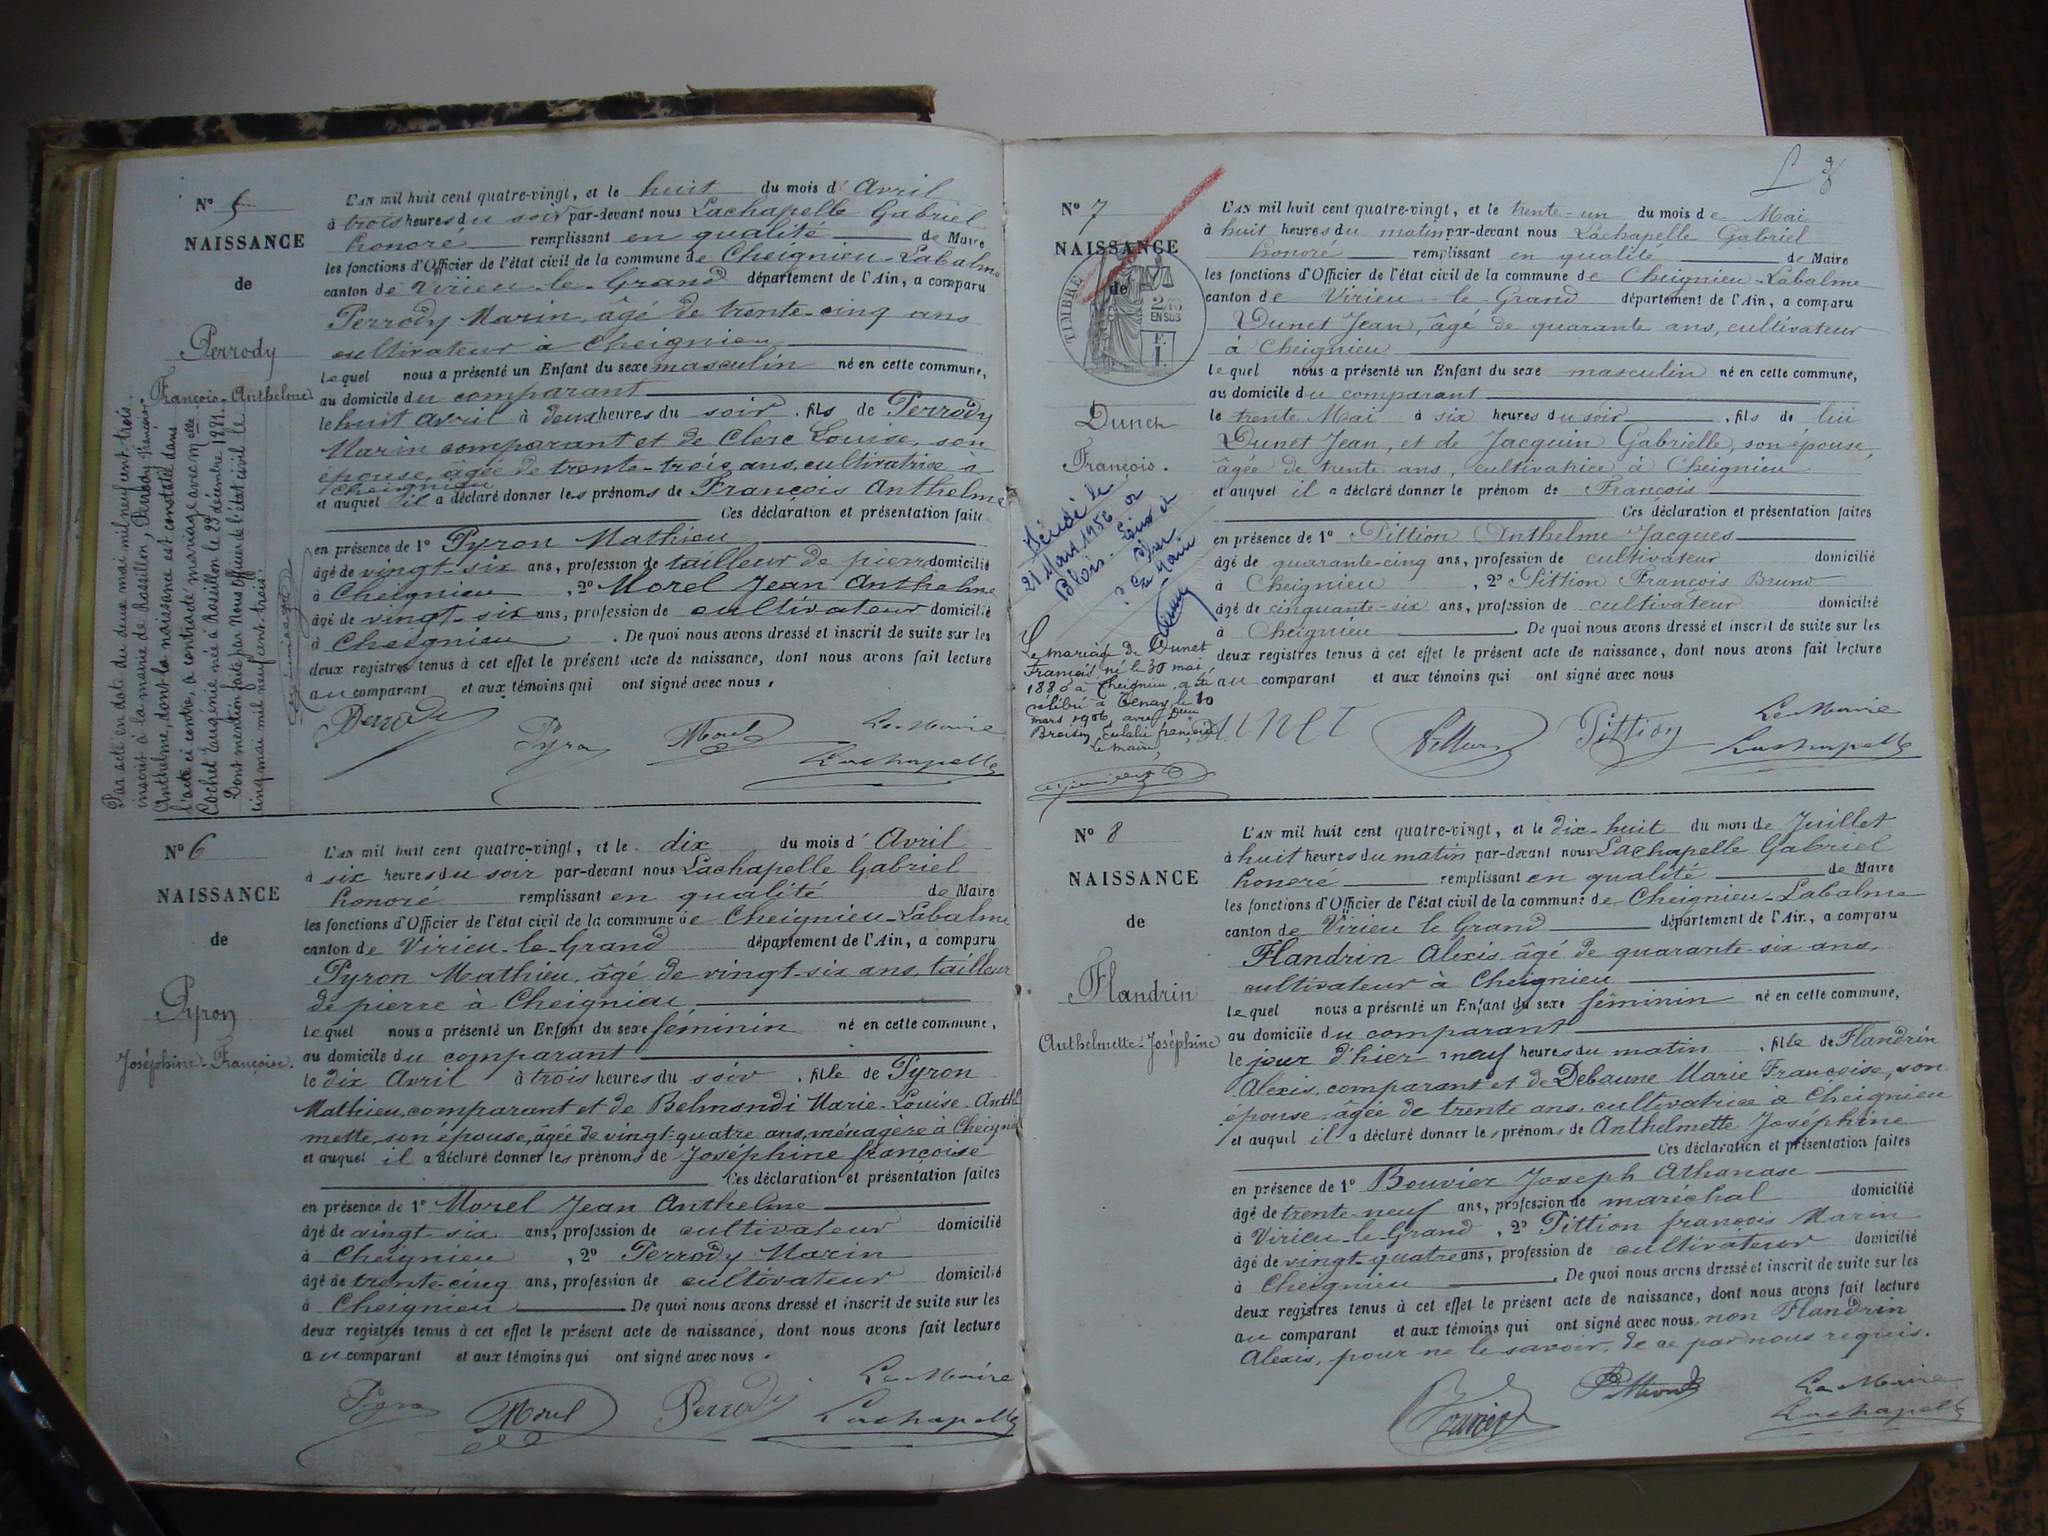 N° 5
NAISSANCE
de
Perrody
François-Anthelme
Par acte en date du deux mai mil neuf cent trois,
inscrit à la mairie de Rossillon, Perrody François-
Anthelme, dont la naissance est constatée dans
l'acte ci contre, a contracté mariage avec Melle
Cochet Eugénie née à Rossillon le 29 décembre 1881.
Dont mention faite par Nous officier de l'état civil le
cinq mai mil neuf cent trois.
L'AN mil huit cent quatre-vingt, et le huit du mois d' Avril
à trois heures du soir par-devant nous Lachapelle Gabriel
honoré remplissant en qualité de Maire
les fonctions d'Officier de l'état civil de la commune de Cheignieu-Labalme
canton de Virieu-le-Grand département de l'Ain, a comparu
Perrody Marin, âgé de trente-cinq ans
cultivateur à Cheignieu
lequel nous a présenté un Enfant du sexe masculin né en cette commune,
au domicile du comparant
le huit avril à deux heures du soir, fils de Perrody
Marin comparant et de Clerc Louise, son
épouse, âgée de trente-trois ans, cultivatrice à
Cheignieu
et auquel il a déclaré donner les prénoms de François Anthelme
Ces déclaration et présentation faites
en présence de 1° Pyron Mathieu
âgé de vingt-six ans, profession de tailleur de pierre domicilié
à Cheignieu, 2° Morel Jean Anthelme
âgé de vingt-six ans, profession de cultivateur domicilié
à Cheignieu. De quoi nous avons dressé et inscrit de suite sur les
deux registres tenus à cet effet le présent acte de naissance, dont nous avons fait lecture
au comparant et aux témoins qui ont signé avec nous.
Perrody Pyron Morel Le Maire
Lachapelle
N° 6
NAISSANCE
de
Pyron
Joséphine-Françoise.
L'AN mil huit cent quatre-vingt, et le dix du mois d' Avril
à six heures du soir par-devant nous Lachapelle Gabriel
honoré remplissant en qualité de Maire
les fonctions d'Officier de l'état civil de la commune de Cheignieu-Labalme
canton de Virieu-le-Grand département de l'Ain, a comparu
Pyron Mathieu, âgé de vingt-six ans, tailleur
de pierre à Cheignieu
lequel nous a présenté un Enfant du sexe féminin né en cette commune,
au domicile du comparant
le dix Avril à trois heures du soir, fille de Pyron
Mathieu, comparant et de Belmondi Marie-Louise-Anthel
mette, son épouse, âgée de vingt-quatre ans, ménagère à Cheignieu
et auquel il a déclaré donner les prénoms de Joséphine françoise
Ces déclaration et présentation faites
en présence de 1° Morel Jean Anthelme
âgé de vingt-six ans, profession de cultivateur domicilié
à Cheignieu, 2° Perrody Marin
âgé de trente-cinq ans, profession de cultivateur domicilié
à Cheignieu. De quoi nous avons dressé et inscrit de suite sur les
deux registres tenus à cet effet le présent acte de naissance, dont nous avons fait lecture
au comparant et aux témoins qui ont signé avec nous.
Pyron Morel Perrody Le Maire
Lachapelle
N° 7
NAISSANCE
de
TIMBRE
2
EN SUS
Dunet
François.
Décédé le
21 Mars 1956
Blois
Le Maire
Le mariage de Dunet
François, né le 30 mai
1880 à Cheignieu, a été
célébré à Tenay, le 10
mars 1906 avec
Eulalie françoise
Le maire,
L'AN mil huit cent quatre-vingt, et le trente-un du mois de Mai
à huit heures du matin par-devant nous Lachapelle Gabriel
honoré remplissant en qualité de Maire
les fonctions d'Officier de l'état civil de la commune de Cheignieu-Labalme
canton de Virieu-le-Grand département de l'Ain, a comparu
Dunet Jean, âgé de quarante ans, cultivateur
à Cheignieu
lequel nous a présenté un Enfant du sexe masculin né en cette commune,
au domicile du comparant
le trente Mai à six heures du soir, fils de lui
Dunet Jean, et de Jacquin Gabrielle, son épouse,
âgée de trente ans, cultivatrice à Cheignieu
et auquel il a déclaré donner le prénom de François
Ces déclaration et présentation faites
en présence de 1° Pittion Anthelme Jacques
âgé de quarante-cinq ans, profession de cultivateur domicilié
à Cheignieu, 2° Pittion François Bruno
âgé de cinquante-six ans, profession de cultivateur domicilié
à Cheignieu. De quoi nous avons dressé et inscrit de suite sur les
deux registres tenus à cet effet le présent acte de naissance, dont nous avons fait lecture
au comparant et aux témoins qui ont signé avec nous
DUNET Pittion Le Maire
Lachapelle
N° 8
NAISSANCE
de
Flandrin
Anthelmette-Joséphine
L'AN mil huit cent quatre-vingt, et le dix-huit du mois de Juillet
à huit heures du matin par-devant nous Lachapelle Gabriel
honoré remplissant en qualité de Maire
les fonctions d'Officier de l'état civil de la commune de Cheignieu-Labalme
canton de Virieu le Grand département de l'Ain, a comparu
Flandrin Alexis âgé de quarante-six ans,
cultivateur à Cheignieu
lequel nous a présenté un Enfant du sexe féminin né en cette commune,
au domicile du comparant
le jour d'hier neuf heures du matin, fille de Flandrin
Alexis, comparant et de Debaune Marie Françoise, son
épouse, âgée de trente ans, cultivatrice à Cheignieu
et auquel il a déclaré donner les prénoms de Anthelmette Joséphine
Ces déclaration et présentation faites
en présence de 1° Bouvier Joseph Athanase
âgé de trente-neuf ans, profession de maréchal domicilié
à Virieu-le-Grand, 2° Pittion françois Marin
âgé de vingt-quatre ans, profession de cultivateur domicilié
à Cheignieu. De quoi nous avons dressé et inscrit de suite sur les
deux registres tenus à cet effet le présent acte de naissance, dont nous avons fait lecture
au comparant et aux témoins qui ont signé avec nous, non Flandrin
Alexis, pour ne le savoir, de ce par nous requis.
Bouvier Pittion Le Maire
Lachapelle